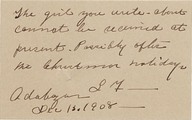 The girls you write about
cannot be received at
present. Possibly after
the Christmas holidays.
Adabazar
Dec 13, 1908